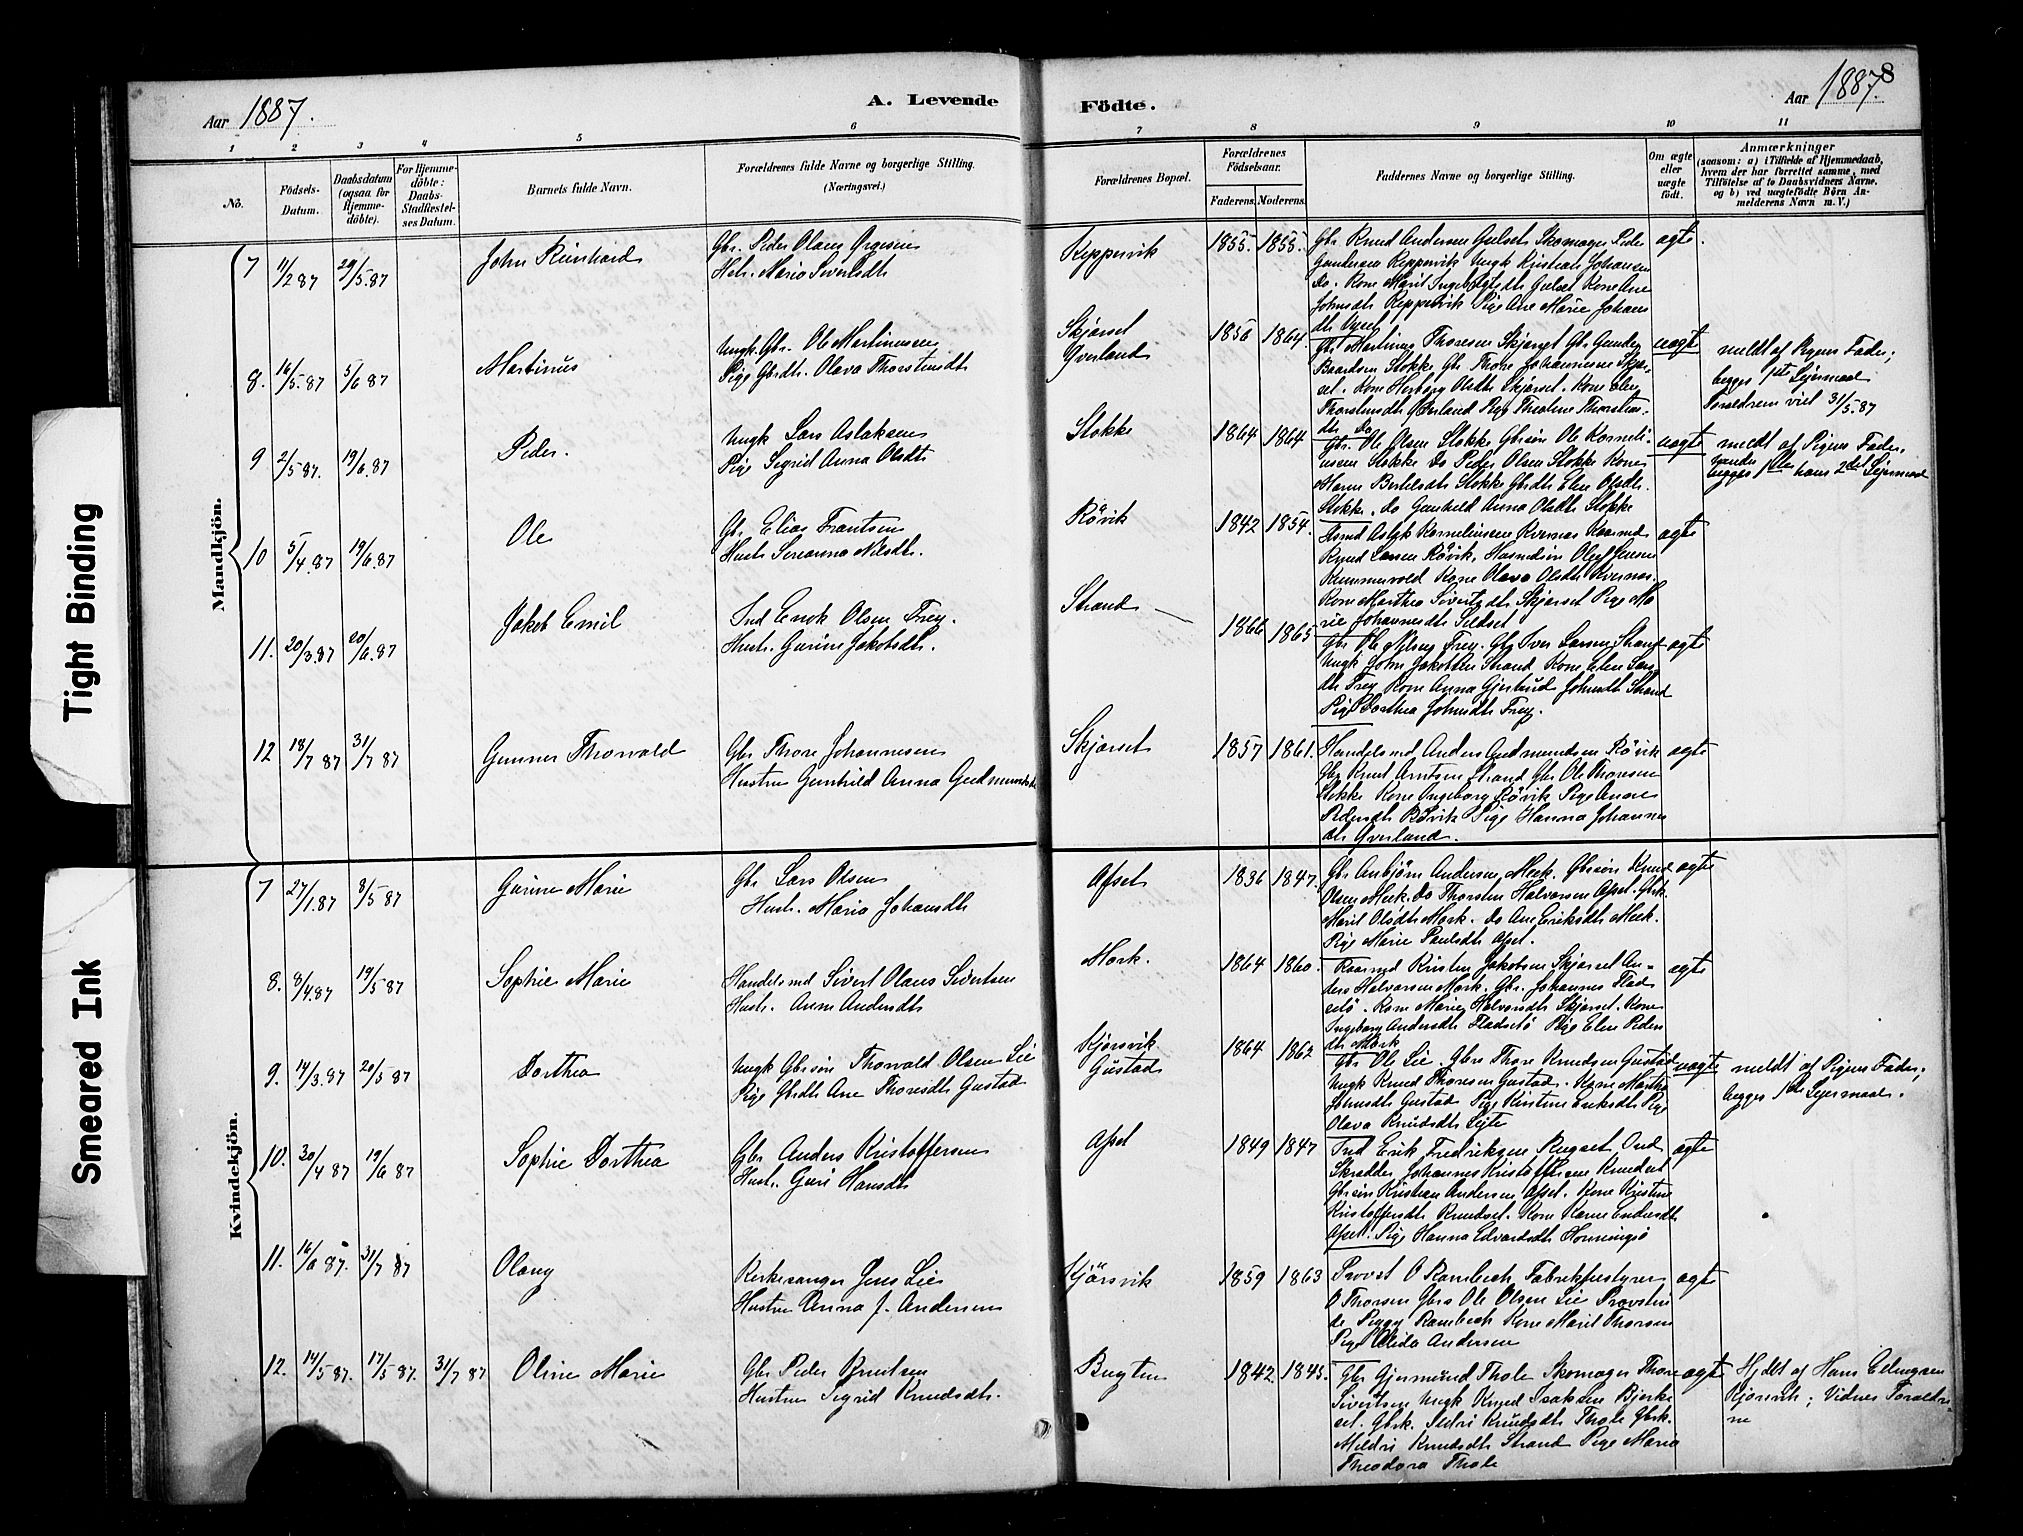 Aar 1887.
A. Levende
Födte.
Aar 1887.
8
1
2
3
4
5
6
7
8
9
10
11
No.
Födsels-Datum.
Daabsdatum (ogsaa for Hjemmedöbte).
For Hjemmedöbte: Daabs-Stadfæstelses Datum.
Barnets fulde Navn.
Forældrenes fulde Navne og borgerlige Stilling. (Næringsvei.)
Forældrenes Bopæl.
Forældrenes Födselsaar.
Faderens. Moderens.
Faddernes Navne og borgerlige Stilling.
Om ægte eller uægte födt.
Anmærkninger
(saasom: a) i Tilfælde af Hjemmedaab, hvem der har forrettet samme, med Tilföielse af to Daabsvidners Navne, og b) ved uægtefödte Börn Anmelderens Navn m. V.)
Mandkjön.
7 11/2 87 29/5.87 John Reinhard
Gbr. Peder Olaus
Hstr. Maria Sivertsdt
Reppervik 1855. 1855.
Gbr Knud Andersen Gulset Skomager Peder
Gundersen Reppervik Ungk Kristian Johansen
Do. Kone Marit Ingebrigtsdt Gulset Kone Ane
Johnsdt Reppervik Pige Ane Marie Johans
dt
ægte.
8. 16/5.87 5/6 87 Martinus
Ungk. Gbr. Ole Martinussen
Pige Gbrdt. Olava Thorstensdt
Skjørset
Gverland
1856 1864.
Gbr Martinus Thoresen Skjørset Gbr Gunder
Baardsen Stokke Gbr Thore Johannesen Skjør-
set. Kone Herborg Olsdt Skjørset. Kone
Thorstensdt Gverland Pige Thorstens-
dt Do
uægte
meldt af Pigens Fader;
begges 1ste Lejermaal
Forældrene viet 31/5.87
9 2/5 87. 19/6.87 Peder.
Ungk Lars Aslaksen
Pige Sigrid Anna Olsdt
Stokke 1864 1864
Gbr. Ole Olsen Stokke Gbrsön Ole Korneli-
ussen Stokke Do Peder Olsen Stokke Kone
Maren Bertelsdt Stokke Gbrdt Elen Olsdt
Stokke. Do Gunhild Anna Olsdt Stokke
uægte
meldt af Pigens Fader,
hendes
begges 1ste hans 2det Lejermaal
10 5/4.87 19/6.87 Ole
Gbr. Elias Frantsen
Hustr Nilsdt.
Rövik 1842 1854.
Husmd Aslak Korneliussen Kvernes Kaarmd
Knud Larsen Rövik, Husmdsön Oluf Jensen
Rummervold Kone Olava Olsdt Kvernes.
Kone Marthea Sivertsdt Skjørset Pige Ma
rie Johannesdt
ægte
11. 20/3.87 20/6.87 Jakob Emil
Ind Enok Olsen Frey.
Hustr. Gurine Jakobsdt.
Strand 1866 1865
Gbr Ole Frey. Gbr Iver Larsen Strand
Ungk John Jakobsen Strand Kone Elen Lars
dt Frey Kone Anna Gjertrud Johnsdt Strand
Pige Dorthea Johnsdt Frey.
ægte
12 18/7 87 31/7 87 Gunner Thorvald
Gbr Thore Johannesen
Hustru Gunhild Anna Gudmundsdt
Skjørset 1857 1861.
Handelsmd Anders Gudmundsen Rövik
Gbr Knut Arntsen Strand Gbr Ole Thoresen
Stokke Kone Ingeborg Rövik Pige Anne
Pedersdt Rövik Pige Hanna Johannes
dt Gverland.
ægte
Kvindekjön.
7 27/1.87 8/5 87 Gurine Marie
Gbr Lars Olsen
Hustr. Maria Johansdt
Afset 1836 1847.
Gbr Anbjörn Andersen Meek. Gbrsön Knud
Olsen Meek. Do Thorsten Halvorsen Afset. Gbrk.
Marit Olsdt Mork. Do Ane Eriksdt Meek.
Pige Marie Paulsdt Afset.
ægte
8. 8/4.87 19/5 87 Sophie Marie
Handelsmd Sivert Olaus Sivertsen
Hustr. Anne Andersdt
Mork. 1864 1860.
Kaarmd Kristen Jakobsen Skjørset An-
ders Halvorsen Mork. Gbr. Johannes Flad
setö. Kone Marie Halvorsdt Skjørset. Kone
Ingeborg Andersdt Fladsetö Pige Elen Peders
dt Mork
ægte
9. 14/3.87 20/5 87 Dorthea
Ungk Gbrsön Thorvald Olsen Lie
Pige Gbrdt Ane Thoresdt Gustad
Kjørsvik
Gustad
1864 1862
Gbr Ole Lie. Gbr Thore Knudsen Gustad
Ungk Knud Thoresen Gustad. Kone Martha
Johnsdt Gustad Pige Kristine Eriksdt Pige
Olava Knudsdt
uægte
meldt af Pigens Fader;
begges 1ste Lejermaal.
10. 30/4 87 19/6 87 Sophie Dorthea
Gbr Anders Kristoffersen
Hustr. Guri Hansdt
Afset 1849 1847
Ind Erik Fredriksen Ind
Skrædder Johannes Kristoffersen Knudset
Gbrsön Kristian Andersen Afset. Kone Kristine
Kristoffersdt Knudset. Kone Karen Endresdt
Afset. Pige Hanna Edvardsdt Honningsö
ægte
11. 16/6 87. 31/7 87 Olaug
Kirkesanger Jens Lie
Hustru Anna J. Andersen
Kjörsvik 1859 1863
Provst O Rambech Fabrikbestyrer
O Thorsen Gbr Ole Olsen Lie Provstin
de Peggy Rambech Kone Marit Thorsen
Pige Alida Andersen
ægte
12. 14/5 87. 17/5 87. 31/7 87 Oline Marie
Gbr Peder Knutsen
Hustru Sigrid Knudsdt.
Bugten 1842. 1845.
Gbr Gjermund Thole Skomager Thore
Sivertsen Ungk Knud Isaksen Bjerke
set. Gbrk. Sidri Knudsdt Thole Gbrk.
Mildri Knudsdt Strand Pige Maria
Theodora Thole
ægte
Hjdt af Hans Ellingsen
Kjörsvik; Vidner Forældre
ne
Tight Binding
Smeared Ink